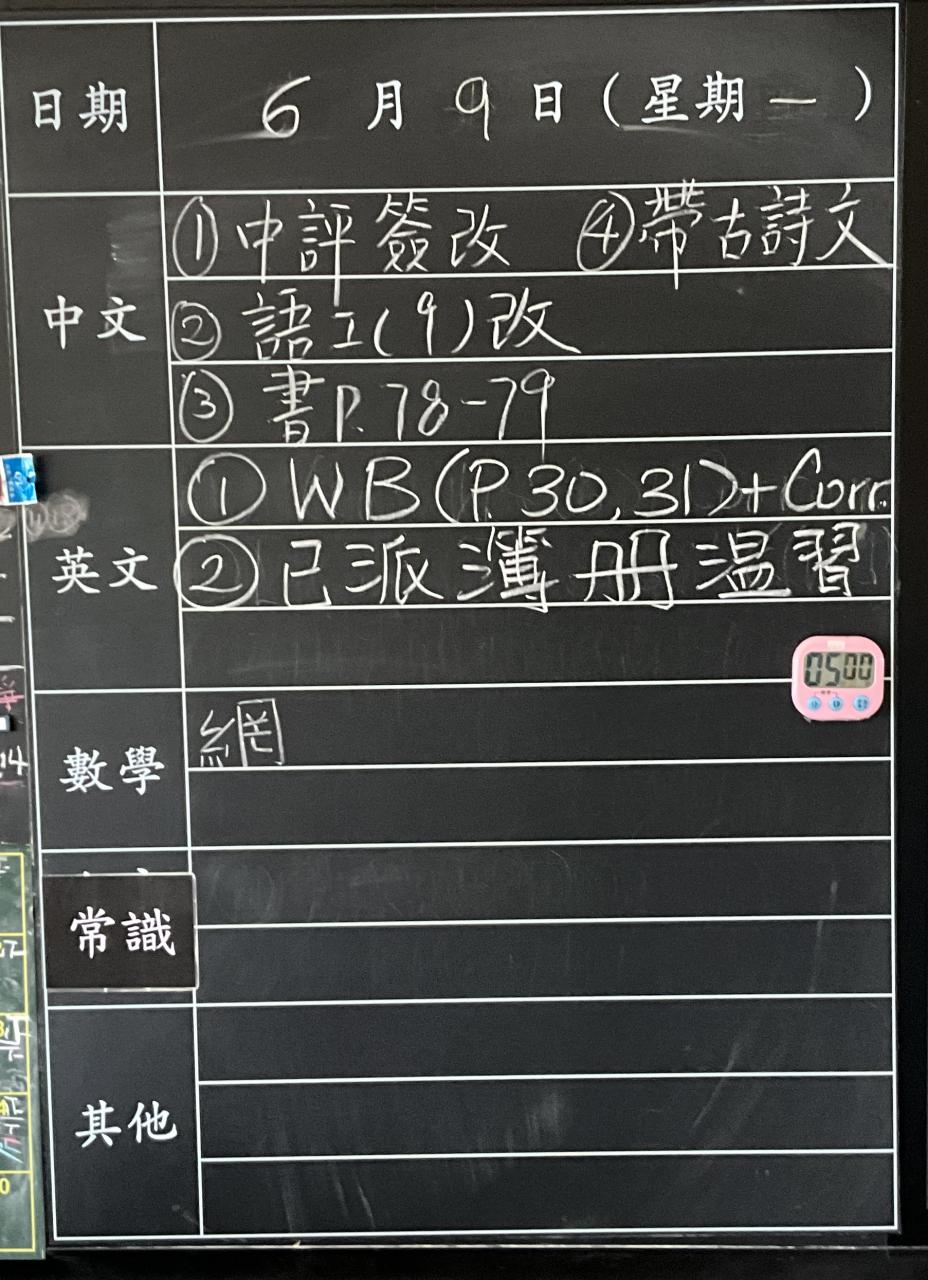 日期 6 月 9 日 ( 星期 一 )
中文
①中評簽改 ④帶古詩文
② 語工(9)改
③ 書P.78-79
英文
① WB (P.30,31)+Corr.
② 已派簿冊溫習
05 00
數學
網
常識
其他